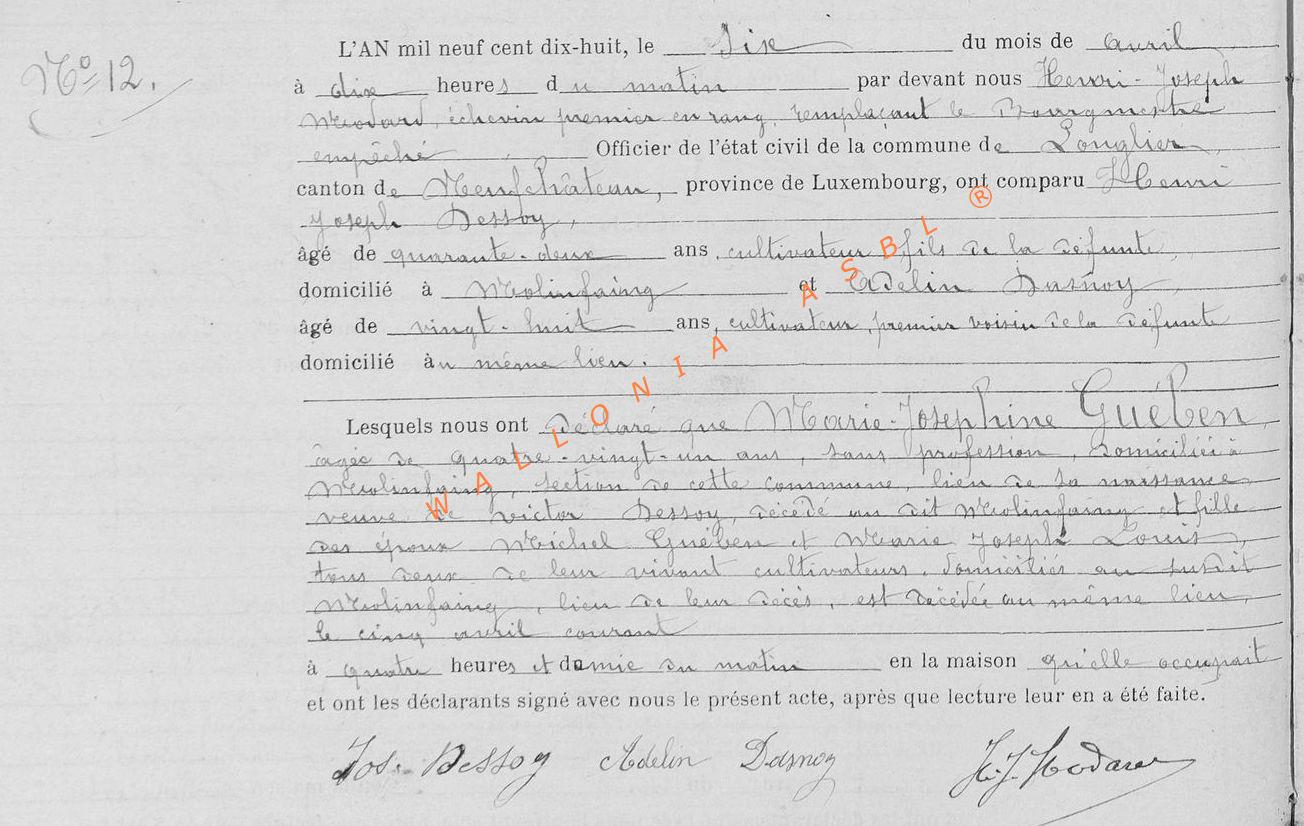 N° 12.
L'AN mil neuf cent dix-huit, le six du mois de avril
à dix heures du matin par devant nous Henri-Joseph
Modard, échevin premier en rang, remplaçant le Bourgmestre
empêché, Officier de l'état civil de la commune de Longlier,
canton de Neufchâteau, province de Luxembourg, ont comparu Henri
Joseph Dessoy,
âgé de quarante-deux ans, cultivateur, fils de la défunte,
domicilié à Molinfaing et Adelin Dasnoy,
âgé de vingt-huit ans, cultivateur, premier voisin de la défunte
domicilié au même lieu.
Lesquels nous ont déclaré que Marie-Josephine Guében,
âgée de quatre-vingt-un ans, sans profession, domiciliée à
Molinfaing, section de cette commune, lieu de sa naissance,
veuve de Victor Dessoy, décédé au dit Molinfaing et fille
des époux Michel Guében et Marie Joseph Louis,
tous deux de leur vivant cultivateurs, domiciliés au susdit
Molinfaing, lieu de leur décès, est décédée au même lieu,
le cinq avril courant
à quatre heures et demie du matin en la maison qu'elle occupait
et ont les déclarants signé avec nous le présent acte, après que lecture leur en a été faite.
Jos. Dessoy Adelin Dasnoy H. J. Modard
WALLONIA ASBL ®